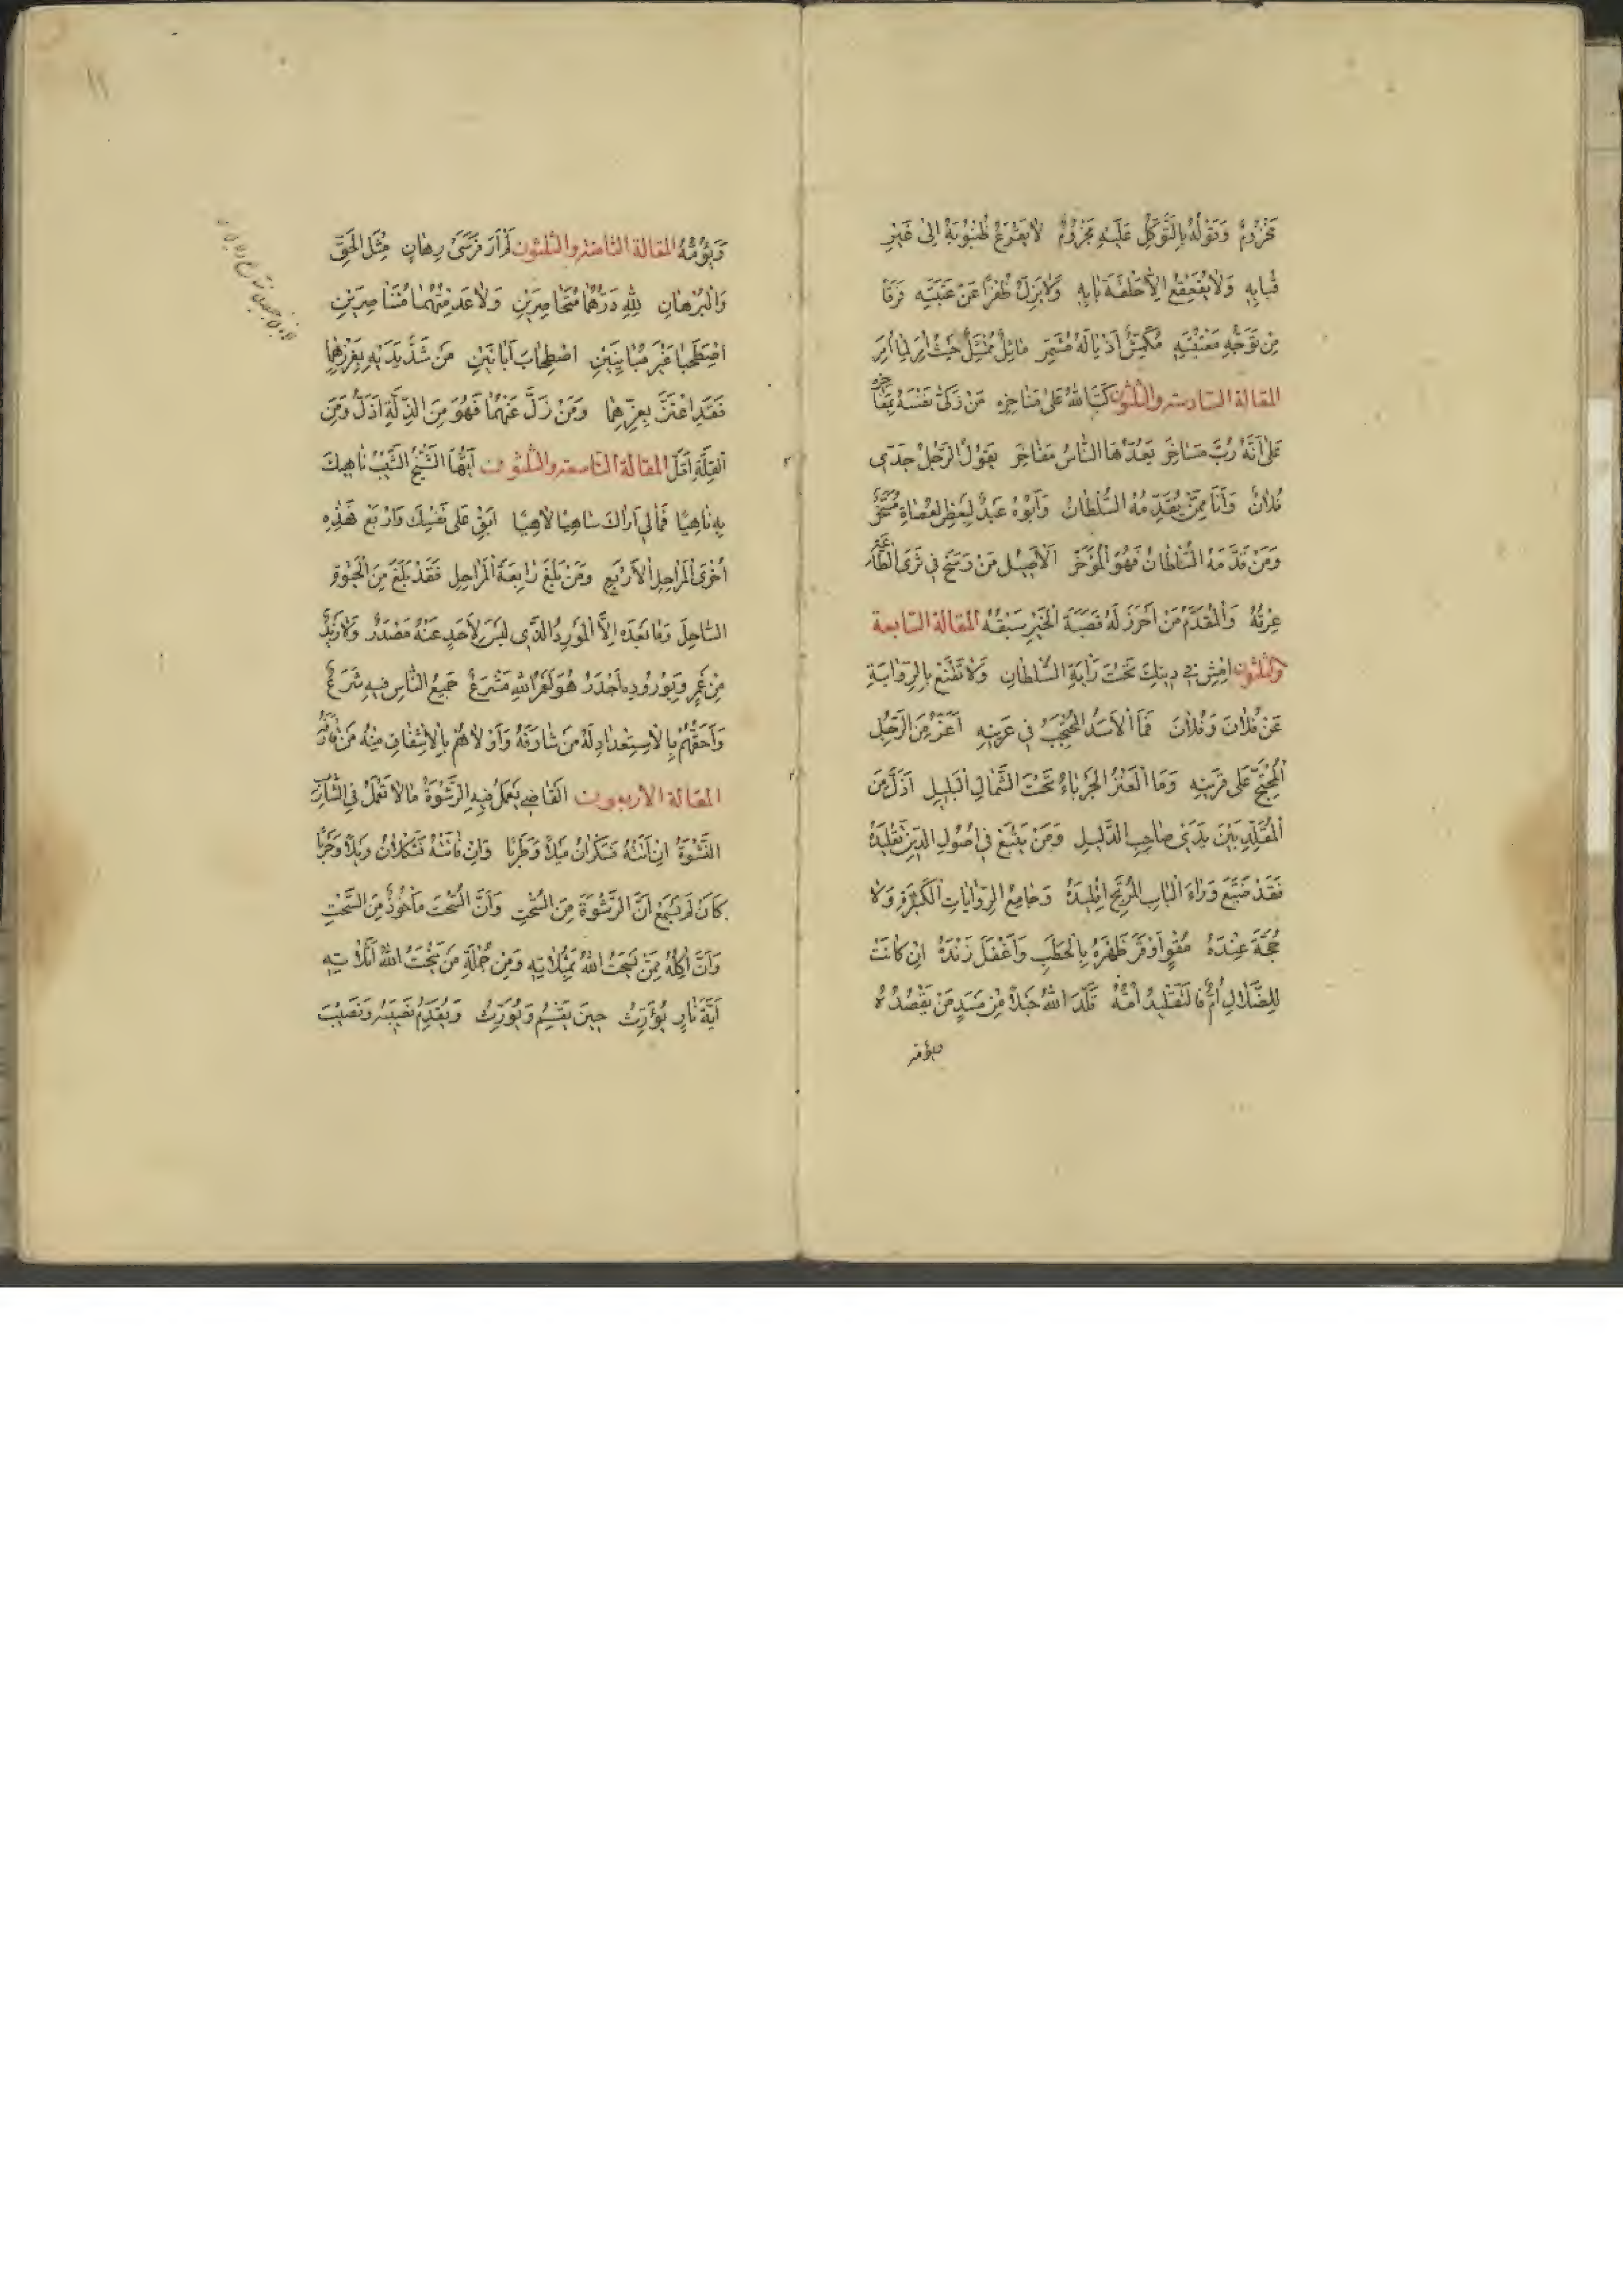 مَحْزُومٌ وَقَوْلُهُ بِالتَّوَكُّلِ عَلَيْهِ مَجْزُومٌ لَا يَقْرَعُ ظُنْبُوبَهُ إِلَى غَيْرِ
بَابِهِ وَلَا يُقَعْقِعُ إِلَّا حَلْقَةَ بَابِهِ وَلَا يَزِلُّ عَنْ عَتَبَتِهِ فَرَقًا
مِنْ تَوَجُّهِ مَعْتَبَتِهِ مُكَمِّشٌ أَذْيَالَهُ مُشَمِّرٌ مَاثِلٌ مُمْتَثِلٌ حَيْثُ أُمِرَ لِمَا أُمِرَ
المقالة السادسة والثلثون كَبَّ اللهُ عَلَى مَنَاخِرِهِ مَنْ زَكَّى نَفْسَهُ بِمَفَاخِرِهِ
عَلَى أَنَّهُ رُبَّ مَسَاخِرَ يَعُدُّهَا النَّاسُ مَفَاخِرَ يَقُولُ الرَّجُلُ جَدِّي
فُلَانٌ وَأَنَا مِمَّنْ يُقَدِّمُهُ السُّلْطَانُ وَأَبُوهُ عَبْدٌ لِبَعْضِ العُصَاةِ مُسَخَّرٌ
وَمَنْ قَدَّمَهُ السُّلْطَانُ فَهُوَ الْمُؤَخَّرُ الْأَصِيلُ مَنْ رَسَخَ فِي ثَرَى الطَّاعَةِ
عِرْقُهُ وَالْمُقَدَّمُ مَنْ أَحْرَزَ لَهُ قَصَبَةَ الْخَيْرِ سَبْقُهُ المقالة السابعة
والثلثون امْشِ فِي دِينِكَ تَحْتَ رَايَةِ السُّلْطَانِ وَلَا تَقْنَعْ بِالرِّوَايَةِ
عَنْ فُلَانٍ وَفُلَانٍ فَمَا الْأَسَدُ الْمُحْتَجِبُ فِي عَرِينِهِ أَعَزُّ مِنَ الرَّجُلِ
الْمُحْتَجِّ عَلَى قَرِينِهِ وَمَا الْعَنْزُ الْجَرْبَاءُ تَحْتَ الشَّمَالِ الْبَلِيلِ أَذَلُّ مِنَ
الْمُقَلِّدِ بَيْنَ يَدَيْ صَاحِبِ الدَّلِيلِ وَمَنْ يَتْبَعْ فِي أُصُولِ الدِّينِ تَقْلِيدَهُ
فَقَدْ ضَيَّعَ وَرَاءَ الْبَابِ الْمُرْتَجِ إِقْلِيدَهُ وَجَامِعُ الرِّوَايَاتِ الْكَثِيرَةِ وَلَا
حُجَّةَ عِنْدَهُ مُقْوٍ أَوْقَرَ ظَهْرَهُ بِالْحَطَبِ وَأَغْفَلَ زَنْدَهُ إِنْ كَانَتْ
لِلضَّلَالِ أُمٌّ فَالتَّقْلِيدُ أُمُّهُ قَلَّدَ اللهُ حَبْلًا مِنْ مَسَدٍ مَنْ يَقْصُدُهُ
ويؤمه
وَيَؤُمُّهُ المقالة الثامنة والثلثون لَمْ أَرَ فَرَسَيْ رِهَانٍ مِثْلَ الْحَقِّ
وَالْبُرْهَانِ لِلّهِ دَرُّهُمَا مُتَخَاصِرَيْنِ وَلَا عَدِمْتُهُمَا مُتَنَاصِرَيْنِ
اصْطَحَبَا غَيْرَ مُبَايِنَيْنِ اصْطِحَابَ أَبَانَيْنِ مَنْ شَدَّ يَدَيْهِ بِغَرْزِهِمَا
فَقَدِ اعْتَزَّ بِعِزِّهِمَا وَمَنْ زَلَّ عَنْهُمَا فَهُوَ مِنَ الذِّلَّةِ أَذَلُّ وَمِنَ
الْقِلَّةِ أَقَلُّ المقالة التاسعة والثلثون أَيُّهَا الشَّيْخُ الشَّيْبُ نَاهِيكَ
بِهِ نَاهِيًا فَمَا لِي أَرَاكَ سَاهِيًا لَاهِيًا ابْقِ عَلَى نَفْسِكَ وَارْبَعْ هَذِهِ
أُخْرَى الْمَرَاحِلِ الْأَرْبَعِ وَمَنْ بَلَغَ رَابِعَةَ الْمَرَاحِلِ فَقَدْ بَلَغَ مِنَ الْحَيَوةِ
السَّاحِلَ وَمَا بَعْدَهُ إِلَّا الْمَوْرِدُ الَّذِي لَيْسَ لِأَحَدٍ عَنْهُ مَصْدَرٌ وَلَا زَيْدٌ
مِنْ عَمْرٍو بِوُرُودِهِ أَجْدَرُ هُوَ لَعَمْرُ اللهِ مَشْرَعٌ جَمِيعُ النَّاسِ فِيهِ شَرَعٌ
وَأَحَقُّهُمْ بِالْاِسْتِعْدَادِ لَهُ مَنْ شَارَفَهُ وَأَوْلَاهُمْ بِالْإِشْفَاقِ مِنْهُ مَنْ قَارَفَهُ
المقالة الاربعون القَاضِي يَعْمَلُ فِيهِ الرِّشْوَةُ مَا لَا تَعْمَلُ فِي الشَّارِبِ
النَّشْوَةُ إِنْ أَتَتْهُ فَسَكْرَانُ مَيْلًا وَطَرَبًا وَإِنْ فَاتَتْهُ فَثَكْلَانُ وَيْلًا وَحَرَبًا
كَأَنْ لَمْ يَسْمَعْ أَنَّ الرِّشْوَةَ مِنَ السُّحْتِ وَأَنَّ السُّحْتَ مَأْخُوذٌ مِنَ السَّحْتِ
وَأَنَّ آكِلَهُ مِمَّنْ يَسْحَتُ اللهُ بِمَثُلَاتِهِ وَمِنْ جُمْلَةِ مَنْ يَنْحَتُ اللهُ أَثَلَاتِهِ
أَيَّةَ نَارٍ يُؤَرِّثُ حِينَ يَقْسِمُ وَيُوَرِّثُ وَيُقَدِّمُ نَصِيبَهُ وَنَصِيبَ